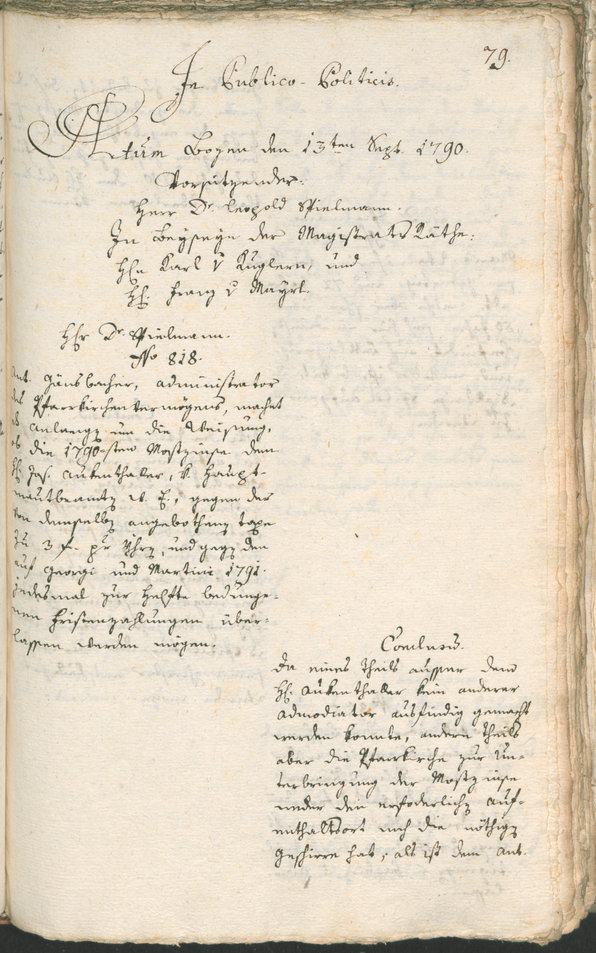 79.
In Publico-Politicis.
Actum Bozen den 13ten Sept. 1790.
Vorsitzender:
Herr Dr. Leopold Spielmann.
In Beyseyn der Magistrats Räthe:
Hln Karl v Kuglern, und
Hl. Franz v Mayrl.
Hr Dr. Spielmann.
No 828.
Ant. Gänsbacher, Administrator
des Pfarrkirchenvermögens, machet
anlangen um die Weisung,
ob die 1790-sten Mostzinse dem
Hl. Jos. Aukenthaler, k. Haupt-
mautbeamten gegen der
von demselben angebothenen taxe
zu 3 f. pr Yhrn, und gegen den
auf Georgi und Martini 1791.
jedesmal zur Helfte bedunge-
nen Fristenzahlungen über-
lassen werden mögen.
Conclusum.
Da eines Theils ausser dem
Hl. Aukenthaler kein anderer
Admodiator ausfindig gemacht
werden konnte, andern Theils
aber die Pfarrkirche zur Un-
terbringung der Mostzinse
weder den erforderlichen Auf-
enthaltsort noch die nöthigen
Geschirre hat; als ist dem Ant.